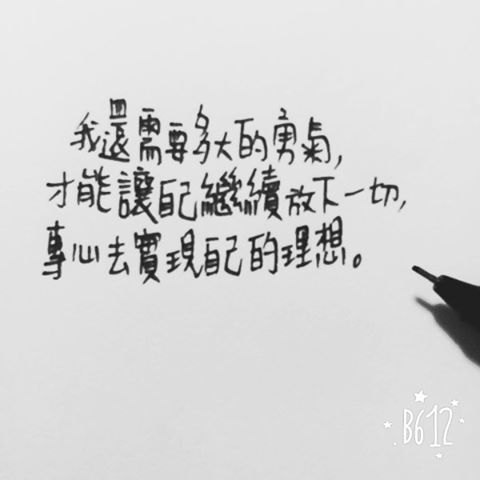 我還需要多大的勇氣,
才能讓自己繼續放下一切,
專心去實現自己的理想。
B612